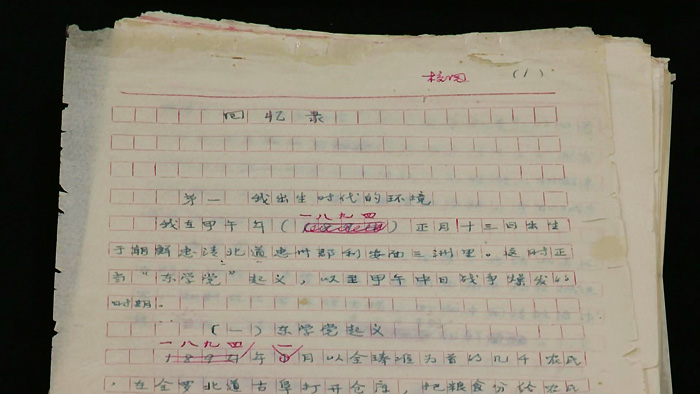 校园 (1)
回忆录
第一 我出生时代的环境
一八九四
我在甲午年()正月十三日出生
于朝鲜忠清北道忠州郡利安面三洲里。这时正
当“东学党”起义,以至甲午中日战争爆发的
时期。
(一)东学党起义
一八九四 一
1894年 月以全琫准为首的几千农民
,在全罗北道古阜打开仓库,把粮食分给农民